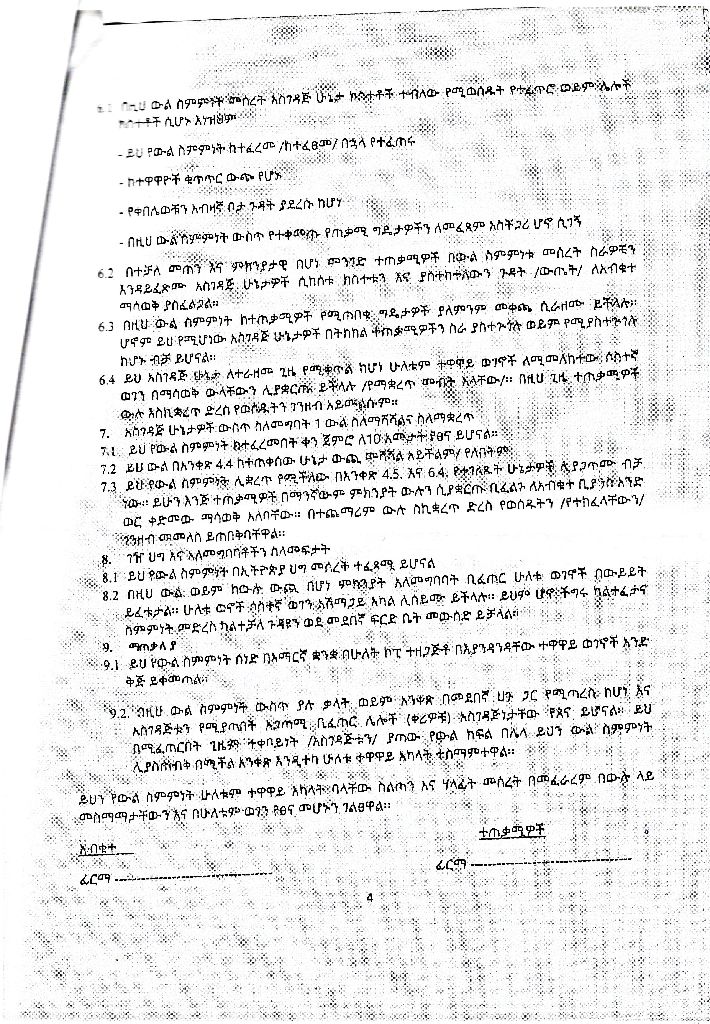 6.1 በዚህ ውል ስምምነት መሰረት አስገዳጅ ሁኔታ ክስተቶች ተብለው የሚወሰዱት የተፈጥሮ ወይም ሌሎች
ክስተቶች ሲሆኑ እነዝህም
- ይህ የውል ስምምነት ከተፈረመ /ከተፈፀመ/ በኋላ የተፈጠሩ
- ከተዋዋዮች ቁጥጥር ውጭ የሆኑ
- የቀበሌውቹን አብዛኛ ቦታ ጉዳት ያደረሱ ከሆነ
- በዚህ ውል ስምምነት ውስጥ የተቀመጡ የጠቃሚ ግዴታዎችን ለመፈጸም አስቸጋሪ ሆኖ ሲገኝ
6.2 በተቻለ መጠን እና ምክንያታዊ በሆነ መንገድ ተጠቃሚዎች በውል ስምምነቱ መሰረት ስራዎቹን
እንዳይፈጽሙ አስገዳጅ ሁኔታዎች ሲከሰቱ ክስተቱን እና ያስተከተለውን ጉዳት /ውጤት/ ለእብቁተ
ማሳወቅ ያስፈልጋል።
6.3 በዚህ ውል ስምምነት ከተጠቃሚዎች የሚጠበቁ ግዴታዎች ያለምንም መቀጫ ሲራዘሙ ይችላሉ።
ሆኖም ይህ የሚሆነው አስገዳጅ ሁኔታዎች በትክክል ተጠቃሚዎችን ስራ ያስተጓጎሉ ወይም የሚያስተጓጎሉ
ከሆኑ ብቻ ይሆናል።
6.4 ይህ አስገዳጅ ሁኔታ ለተራዘመ ጊዜ የሚቀጥል ከሆነ ሁለቱም ተዋዋይ ወገኖች ለሚመለከተው ሶስተኛ
ወገን በማሳወቅ ውላቸውን ሊያቋርጡ ይችላሉ /የማቋረጥ መብት አላቸው/። በዚህ ጊዜ ተጠቃሚዎች
ውሉ እስኪቋረጥ ድረስ የወሰዱትን ገንዘብ አይመልሱም።
7. አስገዳጅ ሁኔታዎች ውስጥ ስለመግባት 1 ውል ስለማሻሻልና ስለማቋረጥ
7.1 ይህ የውል ስምምነት ከተፈረመበት ቀን ጀምሮ ለ10 አመታት ያፀና ይሆናል።
7.2 ይህ ውል በአንቀጽ 4.4 ከተጠቀሰው ሁኔታ ውጪ መሻሻል አይችልም/ የለበትም
7.3 ይህ የውል ስምምነት ሊቋረጥ የሚችለው በአንቀጽ 4.5. እና 6.4. የተገለጹት ሁኔታዎች ሲያጋጥሙ ብቻ
ነው። ይሁን እንጅ ተጠቃሚዎች በማንኛውም ምክንያት ውሉን ሲያቋርጡ ቢፈልጉ ለእብቁተ ቢያንስ አንድ
ወር ቀድመው ማሳወቅ አለባቸው። በተጨማሪም ውሉ ስኪቋረጥ ድረስ የወሰዱትን /የተከፈላቸውን/
ገንዘብ መመለስ ይጠበቅባቸዋል።
8. ገዥ ህግ እና አለመግባባቶችን ስለመፍታት
8.1 ይህ የውል ስምምነት በኢትዮጵያ ህግ መሰረት ተፈጻሚ ይሆናል
8.2 በዚህ ውል ወይም ከውሉ ውጪ በሆነ ምክንያት አለመግባባት ቢፈጠር ሁለቱ ወገኖች በውይይት
ይፈቱታል። ሁለቱ ወኖች ሶስተኛ ወገን አሸማጋይ አካል ሊሰይሙ ይችላሉ። ይህም ሆኖ ችግሩ ካልተፈታና
ስምምነት መድረስ ካልተቻለ ጉዳዩን ወደ መደበኛ ፍርድ ቤት መውሰድ ይቻላል።
9. ማጠቃለያ
9.1 ይህ የውል ስምምነት ሰነድ በአማርኛ ቋንቋ በሁለት ኮፒ ተዘጋጅቶ በእያንዳንዳቸው ተዋዋይ ወገኖች አንድ
ቅጅ ይቀመጣል።
9.2. በዚህ ውል ስምምነት ውስጥ ያሉ ቃላት ወይም አንቀጽ በመደበኛ ህጉ ጋር የሚጣረስ ከሆነ እና
አስገዳጅቱን የሚያጣበት አጋጣሚ ቢፈጠር ሌሎች (ቀሪዎቹ) አስገዳጅነታቸው የጸና ይሆናል። ይህ
በሚፈጠርበት ጊዜም ተቀባይነት /አስገዳጅቱን/ ያጣው የውል ክፍል በሌላ ይህን ውል ስምምነት
ሊያስጠብቅ በሚችል አንቀጽ እንዲተካ ሁለቱ ተዋዋይ አካላት ተስማምተዋል።
ይህን የውል ስምምነት ሁለቱም ተዋዋይ አካላት ባላቸው ስልጠን እና ሃላፊት መሰረት በመፈራረም በውሉ ላይ
መስማማታቸውን እና በሁለቱም ወገን የፀና መሆኑን ገልፀዋል።
እብቁተ
ተጠቃሚዎች
ፊርማ
ፊርማ
4